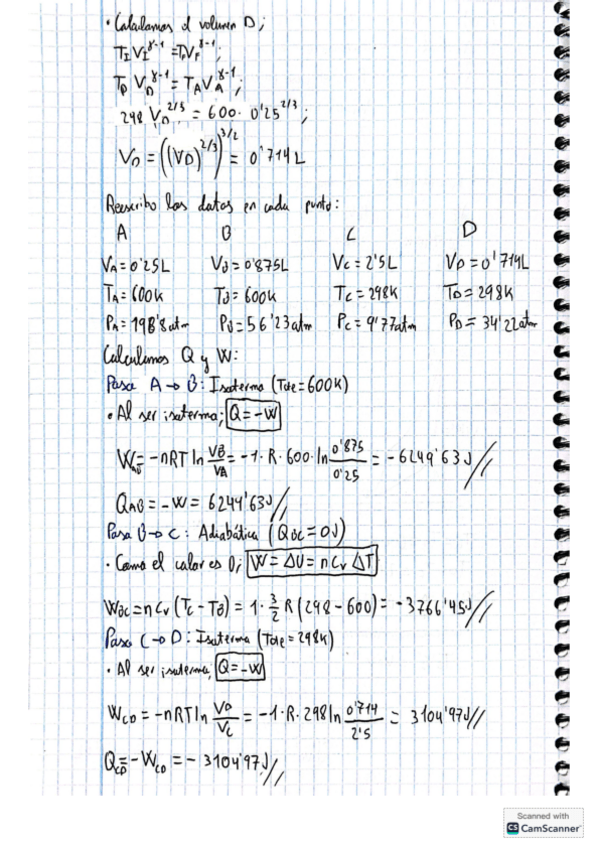 • Calculamos el volumen D;
T_I V_I^{γ-1} = T_F V_F^{γ-1};
T_D V_D^{γ-1} = T_A V_A^{γ-1};
298 V_D^{2/3} = 600 · 0'25^{2/3};
V_D = ((V_D)^{2/3})^{3/2} = 0'714 L
Reescribo los datos en cada punto:
A B C D
V_A = 0'25L V_B = 0'875L V_C = 2'5L V_D = 0'714L
T_A = 600K T_B = 600K T_C = 298K T_D = 298K
P_A = 198'8 atm P_B = 56'23 atm P_C = 9'77 atm P_D = 34'22 atm
Calculamos Q y W:
Paso A → B: Isotermo (Tcte = 600K)
• Al ser isoterma; Q = -W
W_AB = -nRT ln V_B/V_A = -1 · R · 600 · ln 0'875/0'25 = -6249'63 J//
Q_AB = -W = 6249'63 J//
Paso B → C: Adiabática (Q_BC = 0J)
• Como el calor es 0; W = ΔU = n C_v ΔT
W_BC = n C_v (T_C - T_B) = 1 · 3/2 R (298 - 600) = -3766'45 J//
Paso C → D: Isoterma (Tcte = 298K)
• Al ser isoterma, Q = -W
W_CD = -nRT ln V_D/V_C = -1 · R · 298 ln 0'714/2'5 = 3104'97 J//
Q_CD = -W_CD = -3104'97 J//
Scanned with
CS CamScanner